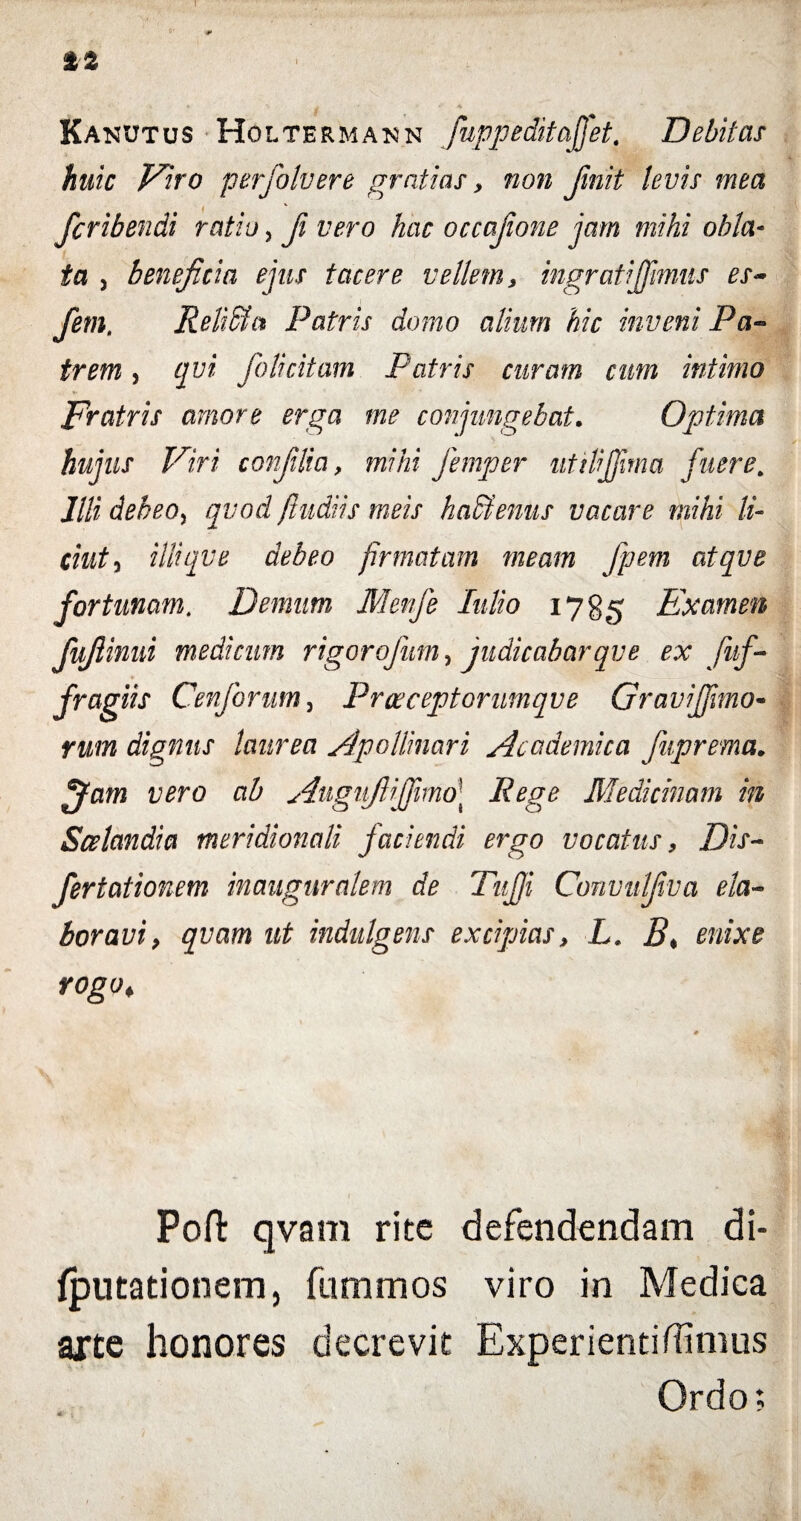 22
KANUTUS HOLTERMANN ſuppeditaſſet. Debitas
huic Viro perſolvere gratias, non ſinit levis mea
ſcribendi ratio, ſi vero hac occaſione jam mihi obla-
ta, beneficia ejus tacere vellem, ingratiſſimus es-
ſem. Relicta Patris domo alium hic inveni Pa-
trem, qvi ſolicitam Patris curam cum intimo
Fratris amore erga me conjungebat. Optima
hujus Viri conſilia, mihi ſemper utiliſſima fuere.
Illi debeo, qvod ſtudiis meis hactenus vacare mihi li-
ciut, illiqve debeo firmatam meam ſpem atqve
fortunam. Demum Menſe Iulio 1785 Examen
ſuſtinui medicum rigoroſum, judicabarqve ex ſuf-
fragiis Cenſorum, Præceptorumqve Graviſſimo-
rum dignus laurea Apollinari Academica ſuprema.
Jam vero ab Auguſtiſſimo Rege Medicinam in
Sælandia meridionali faciendi ergo vocatus, Dis-
ſertationem inauguralem de Tuſſi Convulſiva ela-
boravi, qvam ut indulgens excipias, L. B. enixe
rogo.
Poſt qvam rite defendendam di-
ſputationem, ſummos viro in Medica
arte honores decrevit Experientiſſimus
Ordo;